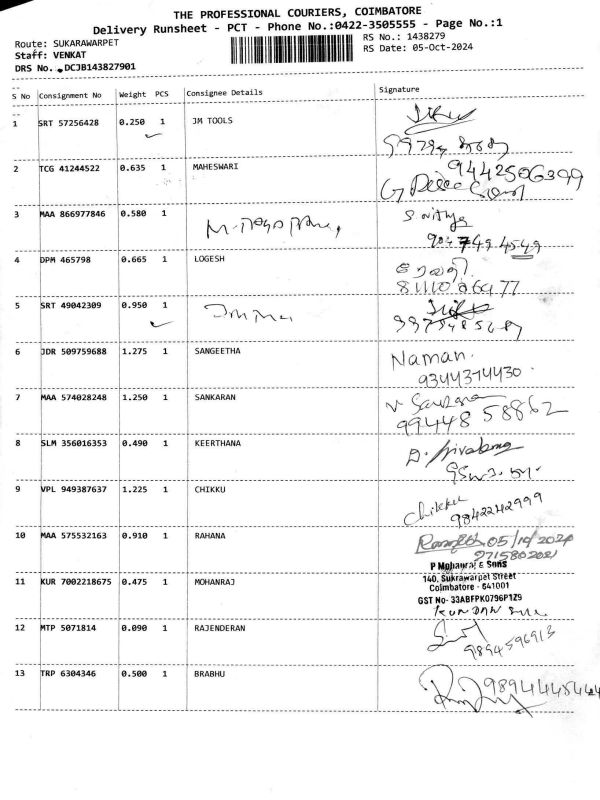 THE PROFESSIONAL COURIERS, COIMBATORE
Delivery Runsheet - PCT - Phone No.:0422-3505555 - Page No.:1
Route: SUKARAWARPET
RS No.: 1438279
Staff: VENKAT
RS Date: 05-Oct-2024
DRS No. DCJB143827901
S No Consignment No Weight PCS Consignee Details Signature
1 SRT 57256428 0.250 1 JM TOOLS
2 TCG 41244522 0.635 1 MAHESWARI
9442506399
3 MAA 866977846 0.580 1
4 DPM 465798 0.665 1 LOGESH
5 SRT 49042309 0.950 1
6 JDR 509759688 1.275 1 SANGEETHA Naman.
9344374430
7 MAA 574028248 1.250 1 SANKARAN
99448 58862
8 SLM 356016353 0.490 1 KEERTHANA
9 VPL 949387637 1.225 1 CHIKKU Chikku
9842242999
10 MAA 575532163 0.910 1 RAHANA 05/10/2024
P Mohanraj & Sons
11 KUR 7002218675 0.475 1 MOHANRAJ 140, Sukrawarpet Street
Coimbatore - 641001
GST No- 33ABFPK0796P1Z9
12 MTP 5071814 0.090 1 RAJENDERAN
13 TRP 6304346 0.500 1 BRABHU